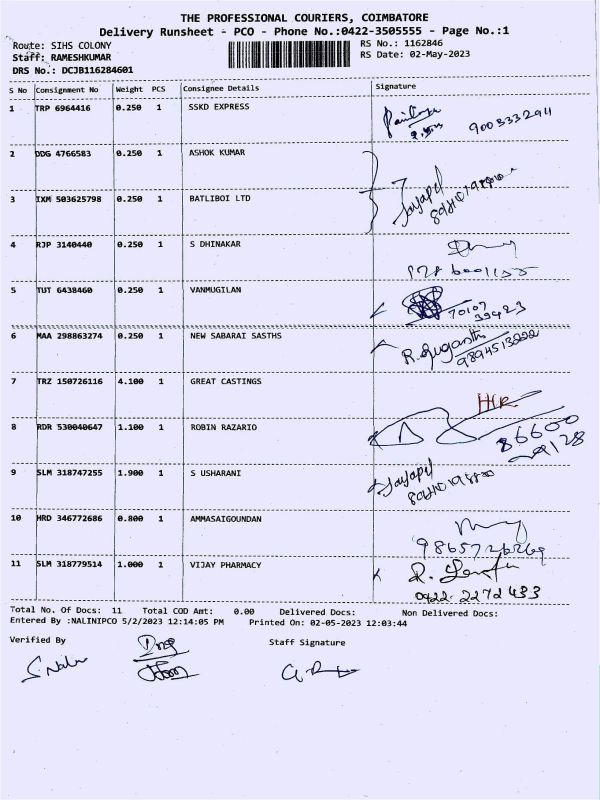 THE PROFESSIONAL COURIERS, COIMBATORE
Delivery Runsheet - PCO - Phone No.:0422-3505555 - Page No.:1
Route: SIHS COLONY
RS No.: 1162846
Staff: RAMESHKUMAR
RS Date: 02-May-2023
DRS No.: DCJB116284601
S No Consignment No Weight PCS Consignee Details Signature
1 TRP 6964416 0.250 1 SSKD EXPRESS
9003333294
2 DDG 4766583 0.250 1 ASHOK KUMAR
3 IXM 503625798 0.250 1 BATLIBOI LTD
Jayapal
4 RJP 3140440 0.250 1 S DHINAKAR
5 TUT 6438460 0.250 1 VANMUGILAN
70107
39423
6 MAA 298863274 0.250 1 NEW SABARAI SASTHS
R. Suganthi
9894513222
7 TRZ 150726116 4.100 1 GREAT CASTINGS
8 RDR 530040647 1.100 1 ROBIN RAZARIO
86600
29128
9 SLM 318747255 1.900 1 S USHARANI
Jayapal
10 HRD 346772686 0.800 1 AMMASAIGOUNDAN
9865726269
11 SLM 318779514 1.000 1 VIJAY PHARMACY
0422-2272433
Total No. Of Docs: 11 Total COD Amt: 0.00 Delivered Docs: Non Delivered Docs:
Entered By :NALINIPCO 5/2/2023 12:14:05 PM Printed On: 02-05-2023 12:03:44
Verified By Staff Signature
S. Nalin